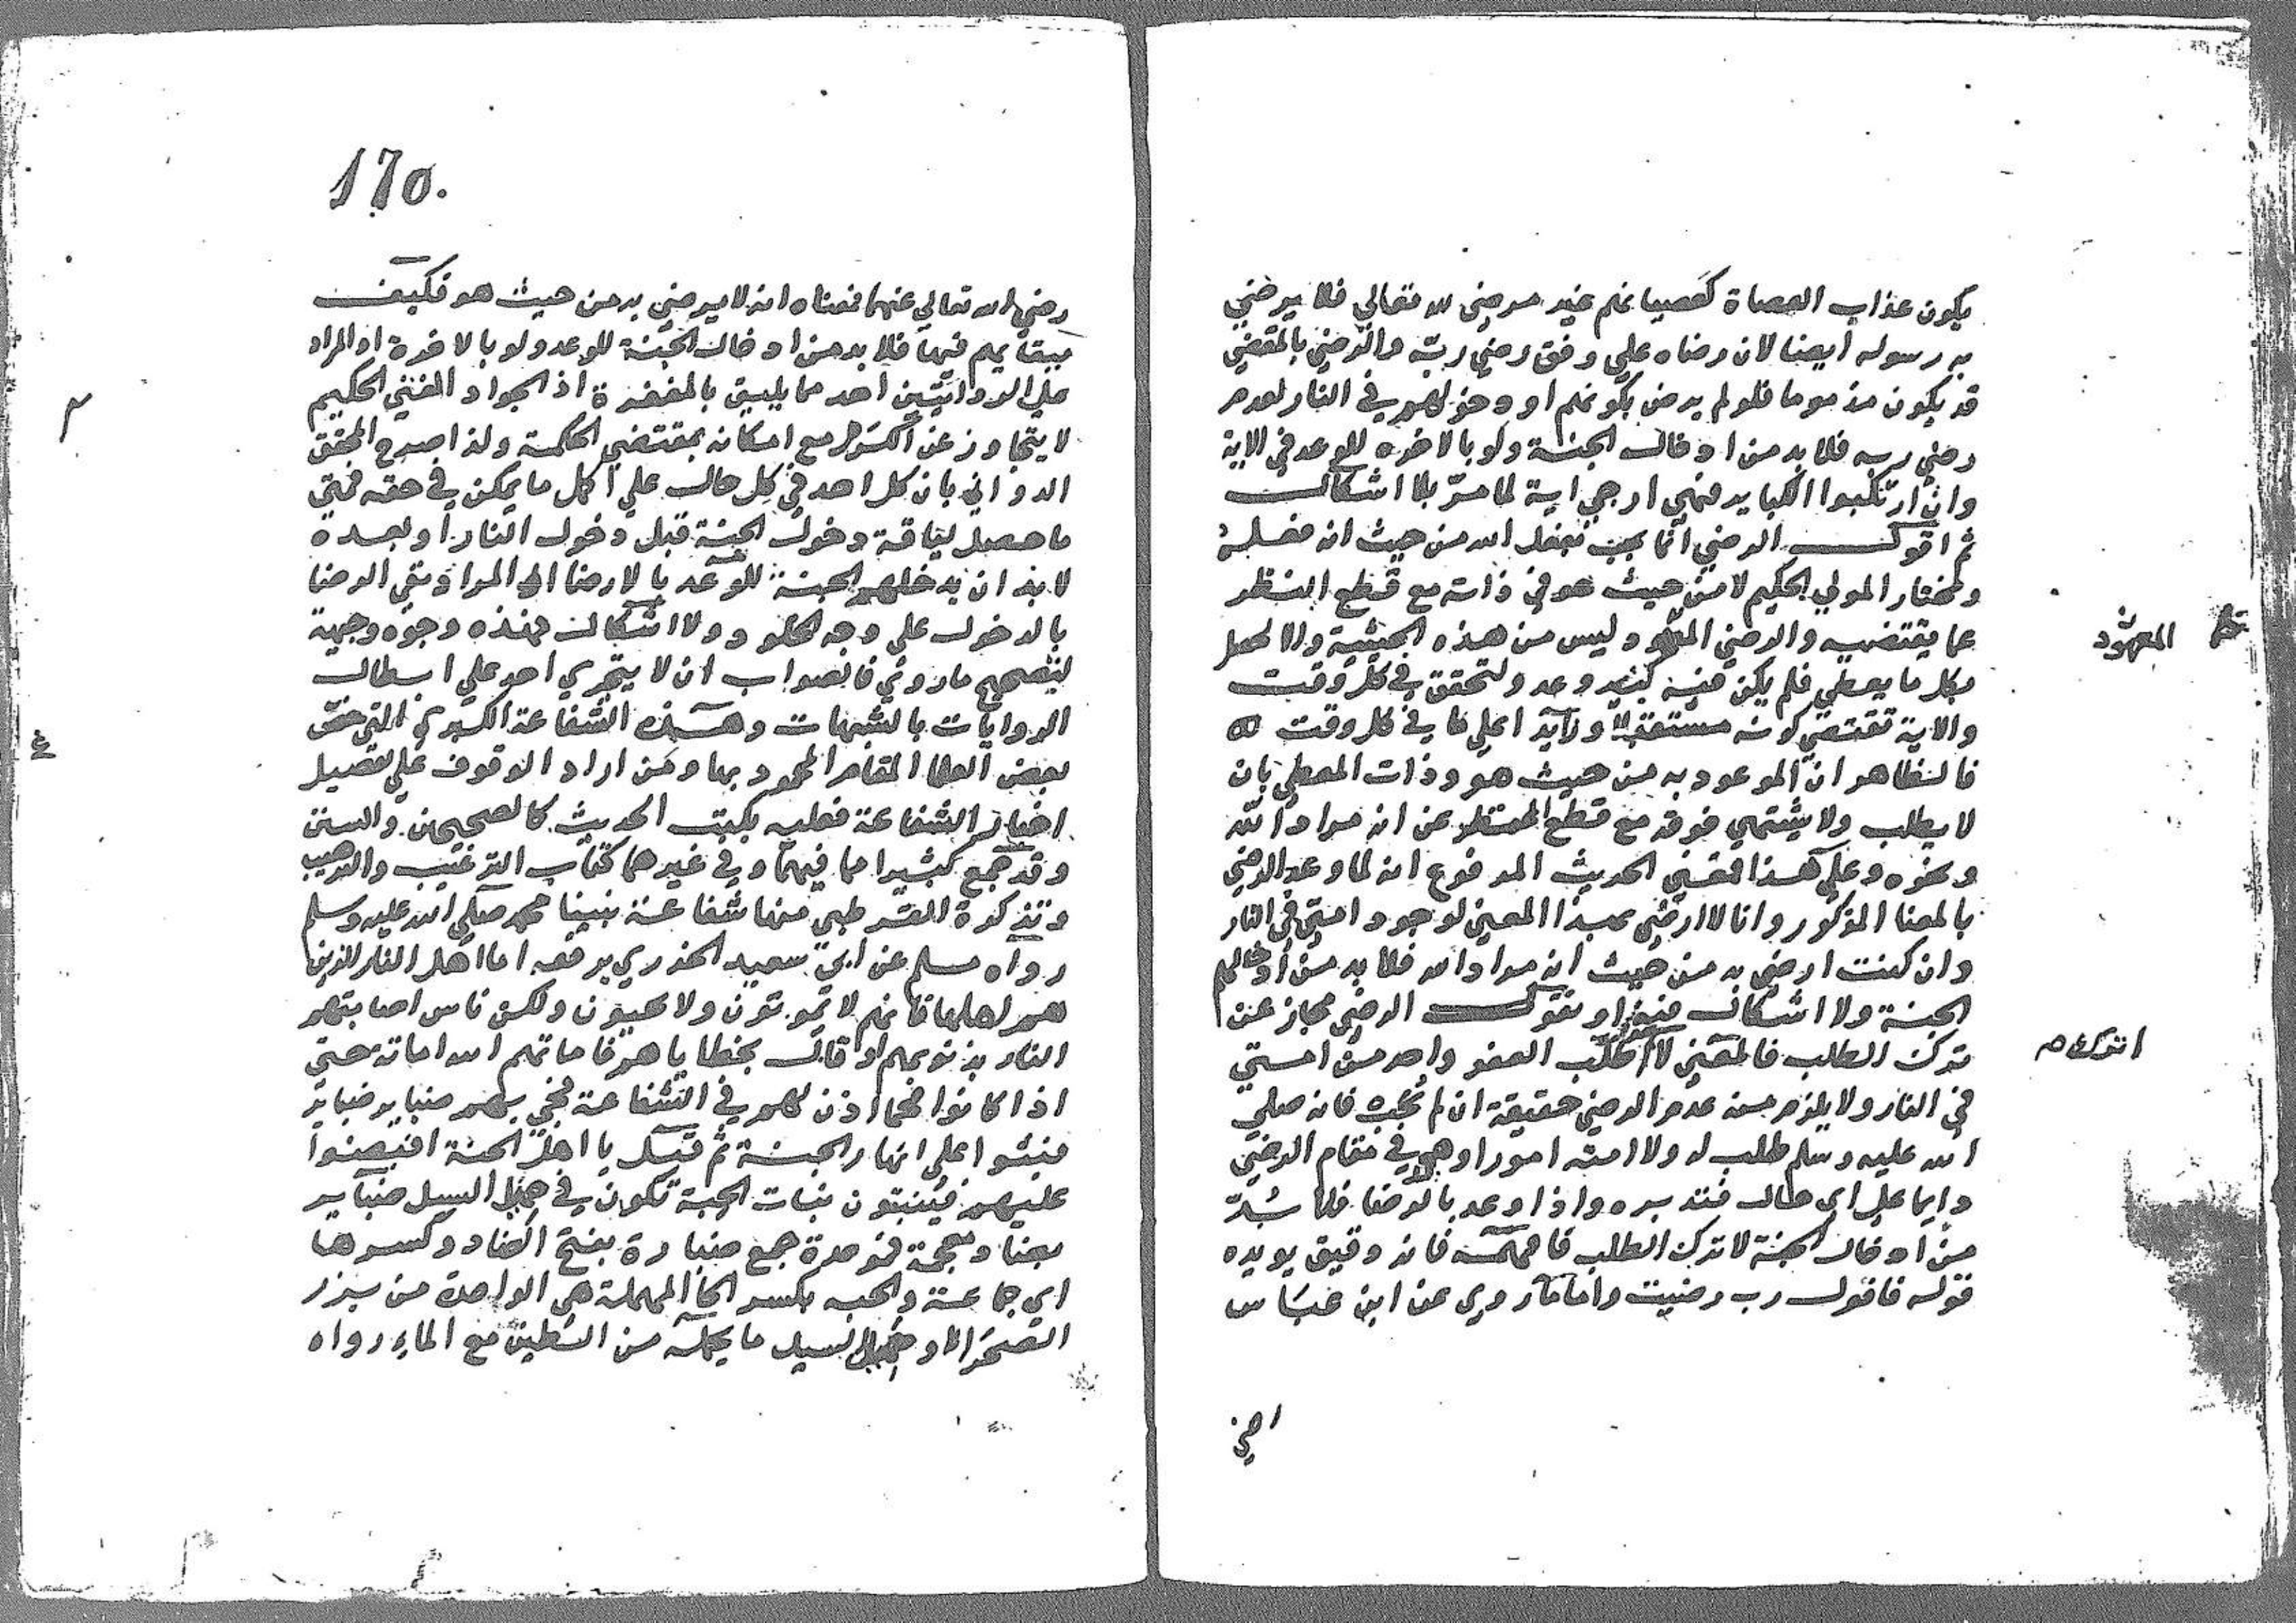 يكون عذاب العصاة كعصيانهم غير مرضى لله تعالي فلا يرضي
به رسوله ايضا لان رضاه علي وفق رضي ربه والرضي بالمقضي
قد يكون مذموما فلو لم يرض بكونهم او دخولهم في النار لعدم
رضي ربه فلا بد من ادخال الجنة ولو بالاخره للوعد في الاية
وان ارتكبوا الكباير فهي ارجي اية لما مر بلا اشكال
ثم اقول الرضي انما يجب بفعل الله من حيث انه فعله
ومختار المولي الحكيم لا من حيث هو في ذاته مع قطع النظر
عما يقتضيه والرضي ليس من هذه الحيثية والا لحصل
المعهود
بكل ما يعطي فلم يكن فيه كثير وعد ولتحقق في كل وقت
والاية تقتضي كونه مستقبلا وزايد اعلي ما في كل وقت
فالظاهر ان الموعود به من حيث هو وذات المعطي بان
لا يطلب ولا يشتهي فوقه مع قطع النظر عن انه مراد الله
ونحوه وعلي هذا فمعني الحديث المرفوع انه لما وعد الرضي
بالمعنا المذكور وانا لا ارضي بهذا المعني لوجود امتي في النار
وان كنت ارضي به من حيث انه مراد الله فلا بد من ادخالهم
الجنة ولا اشكال فيه او نقول الرضي مجاز عن
ترك الطلب فالمعني لا طلب العفو واحد من امتي
اترك
في النار ولا يلزم منه عدم الرضي حقيقة ان لم يجب فانه صلي
الله عليه وسلم طلب له ولا امته امورا وهو في مقام الرضي
دايما علي اي حال فتدبره واذا وعد بالرضا فلا بد
من ادخال الجنة لا ترك الطلب فافهمه فانه دقيق يويده
قوله فاقول رب رضيت واما ما روي عن ابن عباس
رضي
170.
رضي الله تعالي عنهما فمعناه انه لا يرضي به من حيث هو فكيف
ببقايهم فيها فلا بد من ادخال الجنة للوعد ولو بالاخرة او المراد
علي الروايتين احد مما يليق بالمغفرة اذ الجواد الغني الحكيم
لا يتجاوز عن مع امكانه بمقتضي الحكمة ولذا صرح المحقق
الدواني بان كل احد في كل حال علي اكمل ما يمكن في حقه فمتي
ما حصل لياقة دخول الجنة قبل دخول النار او بعده
لا بد ان يدخلهم الجنة للوعد بالارضا او المراد نفي الرضا
بالدخول علي وجه الخلود ولا اشكال فهذه وجوه وجيهة
لتصحيح ما روي فالصواب ان لا يتجري احد علي ابطال
الروايات بالشبهات وهذه الشفاعة الكبري التي خص
بعض العلما المقام المحمود بها ومن اراد الوقوف علي تفصيل
اخبار الشفاعة فعليه بكتب الحديث كالصحيحين والسنن
وقد جمع كثيرا مما فيهما وفي غيرهما كتاب الترغيب والترهيب
وتذكرة القرطبي منها شفاعة نبينا محمد صلي الله عليه وسلم
رواه مسلم عن ابي سعيد الخدري يرفعه اما اهل النار الذين
هم اهلها فانهم لا يموتون ولا يحيون ولكن ناس اصابتهم
النار بذنوبهم او قال بخطاياهم فاماتهم الله اماتة حتي
اذا كانوا فحما اذن لهم في الشفاعة فجي بهم ضباير ضباير
فبثوا علي انهار الجنة ثم قيل يا اهل الجنة افيضوا
عليهم فينبتون نبات الحبة تكون في حميل السيل ضباير
بضاد معجمة فموحدة جمع ضبارة بفتح الضاد وكسرها
اي جماعة والحبه بكسر الحا المهملة هي الواحدة من بزر
الصحرا وحميل السيل ما يحمله من الطين مع الماء رواه